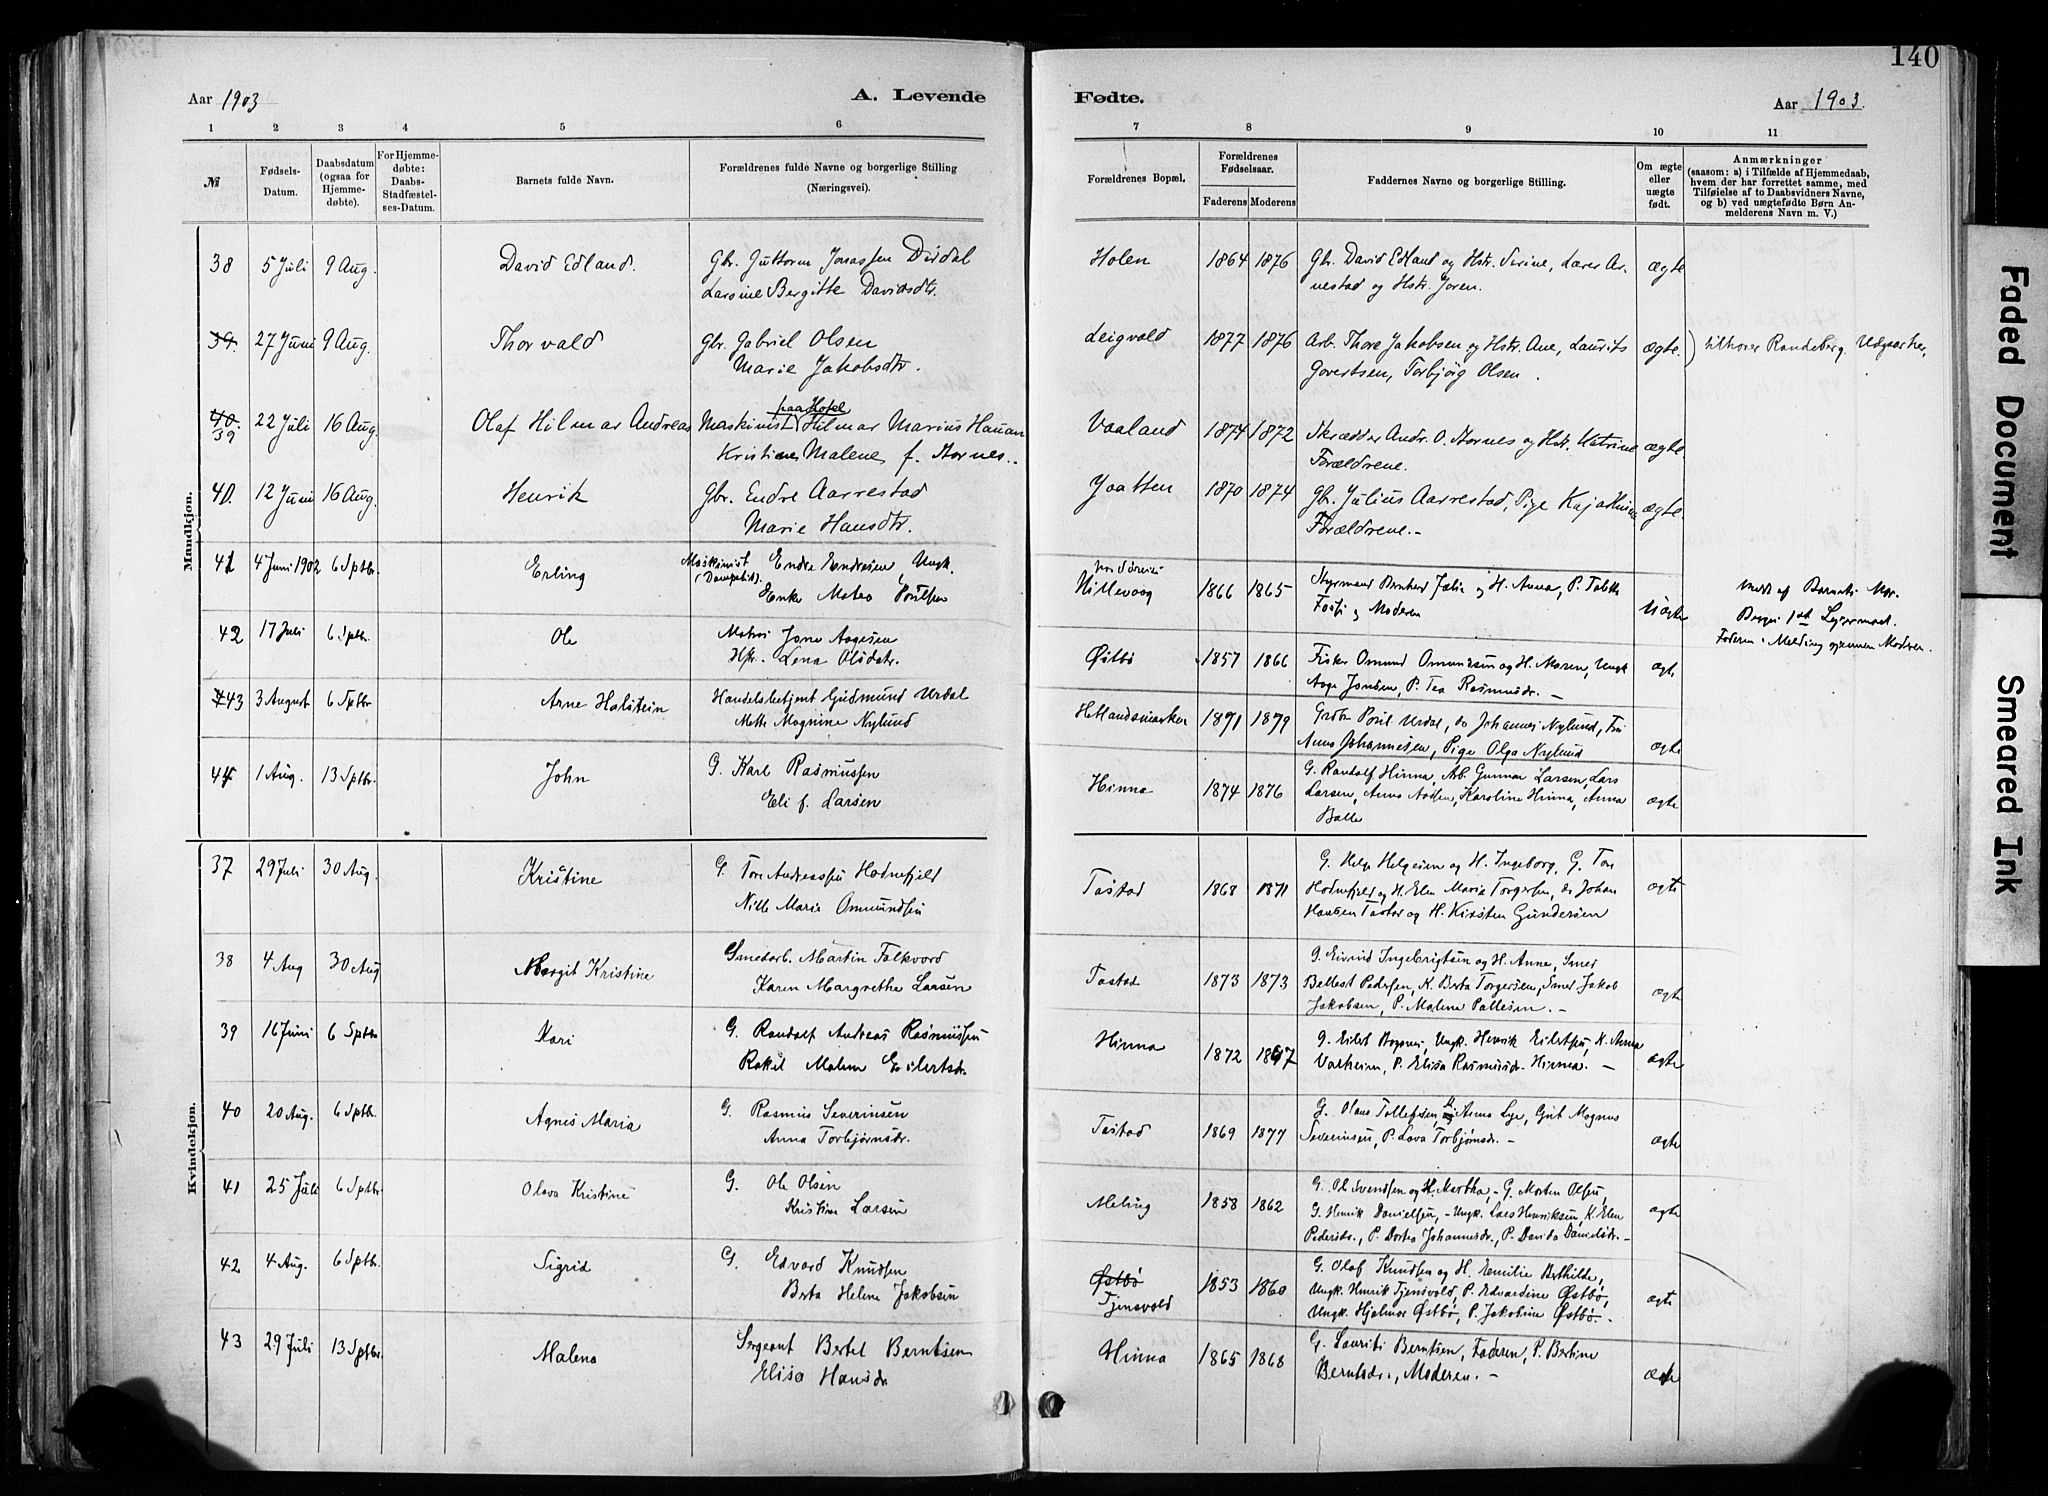 140
Aar 1903
A. Levende
Fødte.
Aar 1903.
1 2 3 4 5 6 7 8 9 10 11
№
Fødsels-
Datum.
Daabsdatum
(ogsaa for
Hjemme-
døbte).
For Hjemme-
døbte:
Daabs-
Stadfæstel-
ses-Datum.
Barnets fulde Navn.
Forældrenes fulde Navne og borgerlige Stilling
(Næringsvei).
Forældrenes Bopæl.
Forældrenes
Fødselsaar.
Faderens Moderens
Faddernes Navne og borgerlige Stilling.
Om ægte
eller
uægte
født.
Anmærkninger
(saasom: a) i Tilfælde af Hjemmedaab,
hvem der har forrettet samme, med
Tilføielse af to Daabsvidners Navne,
og b) ved uægtefødte Børn An-
melderens Navn m. V.)
Mandkjøn.
38 5 Juli 9 Aug. David Edland. Gbr. Guttorm Jonassen Dirdal Holen 1864 1876 Gbr. David Edland og Hstr. Serine, Lærer Ar- ægte
Larsine Bergitte Davidsdtr. nestad og Hstr. Joren.
39. 27 Juni 9 Aug. Thorvald Gbr. Gabriel Olsen Leigvold 1877 1876 Arb. Thore Jakobsen og Hstr. Ane, Laurits ægte. ) tilhører Randeberg.
Marie Jakobsdtr. Govertsen, Torbjørg Olsen.
paa Hotel
40. 39 22 Juli 16 Aug. Olaf Hilmar Andreas Maskinist Hilmar Marius Hauan Vaaland 1874 1872 Skrædder Andr. O. Stornes og Hstr. Katrine ægte.
Malene f. Stornes. Forældrene.
40. 12 Juni 16 Aug. Henrik Gbr. Endre Aarrestad Jaatten 1870 1874 Gbr. Julius Aarrestad, Pige ægte.
Marie Hansdtr. Forældrene.-
41 4 Juni 1902 6 Sptbr. Erling Maskinist Endre Endresen, Ungk. Hillevaag 1866 1865 Styrmand og H. Anna, uægte
Enke Moderen
42 17 Juli 6 Sptbr. Ole Matros Aagesen Østbø 1857 1866 Fisker Omund Omundsen og H. Maren, Ungk ægte
Hstr. Lena Olsdatr. Aage Jonsen, P. Tea Rasmusdr. -
43 3 August 6 Sptbr Arne Halstein Handelsbetjent Gudmund Urdal Hetlandsmarken 1891 1879 Urdal, do Johannes Nylund, ægte
Magnine Nylund Johannesen, Pige Olga Nylund
44 1 Aug. 13 Sptbr. John G. Karl Rasmussen Hinna 1874 1876 G. Randolf Hinna, Arb. Gunnar Larsen, Lars ægte
Eli f. Larsen Larsen, Karoline Hinna, Anna
Balle
Kvindekjøn.
37 29 Juli 30 Aug. Kristine G. Tore Andreassen Hodnefjeld Tastad 1868 1871 G. Helge Helgesen og H. Ingeborg, G. Tore ægte
Marie Omundsen Hodnefjeld og H. Elen Marie Torgersen, do Johan
Hansen Tastad og H. Kirsten Gundersen
38 4 Aug 30 Aug Margit Kristine Smedarb. Martin Folkvord Tastad 1873 1873 G. Eivind Ingebrigtsen og H. Anna, Smed ægte
Karen Margrethe Larsen Pedersen, K. Berta Torgersen, Smed Jakob
Jakobsen, P. Malene Pallesen. -
39 16 Juni 6 Sptbr Kari G. Randolf Andreas Rasmussen Hinna 1872 G. Eilert Ungk. Henrik Eilertsen, K. Anna ægte
Rakel Malene Eilertsdr. P. Elisa Rasmusdr. Hinna. -
40 20 Aug. 6 Sptbr. Agnes Maria G. Rasmus Severinsen Tastad 1869 1877 G. Olaus Tollefsen, Anna Lye, Gut Magnus ægte
Anna Torbjørnsdr. Severinsen, P. Torbjørnsdr. -
41 25 Juli 6 Sptbr Olava Kristine G. Ole Olsen Meling 1858 1862 G. Ole Svendsen og H. Martha, - G. Morten Olsen, ægte
Kristine Larsen G. Henrik Danielsen, - Ungk. Lars Henriksen, K. Elen
Pedersdr., P. Dortea Johannesdr., P. Davida Danielsdr. -
42 4 Aug. 6 Sptbr. Sigrid G. Edvard Knudsen Østbø 1853 1860 G. Olaf Knudsen og H. Emilie Berthilde, ægte
Berta Helene Jakobsen Tjensvold Ungk. Henrik Tjensvold, P. Edvardine Østbø,
Ungk. Hjalmar Østbø, P. Jakobine Østbø. -
43 29 Juli 13 Sptbr. Malena Sergeant Bertel Berntsen Hinna 1865 1868 G. Laurits Berntsen, Faderen, P. Bertine ægte
Elisa Hansdr Berntsdr., Moderen. -
Faded Document
Smeared Ink